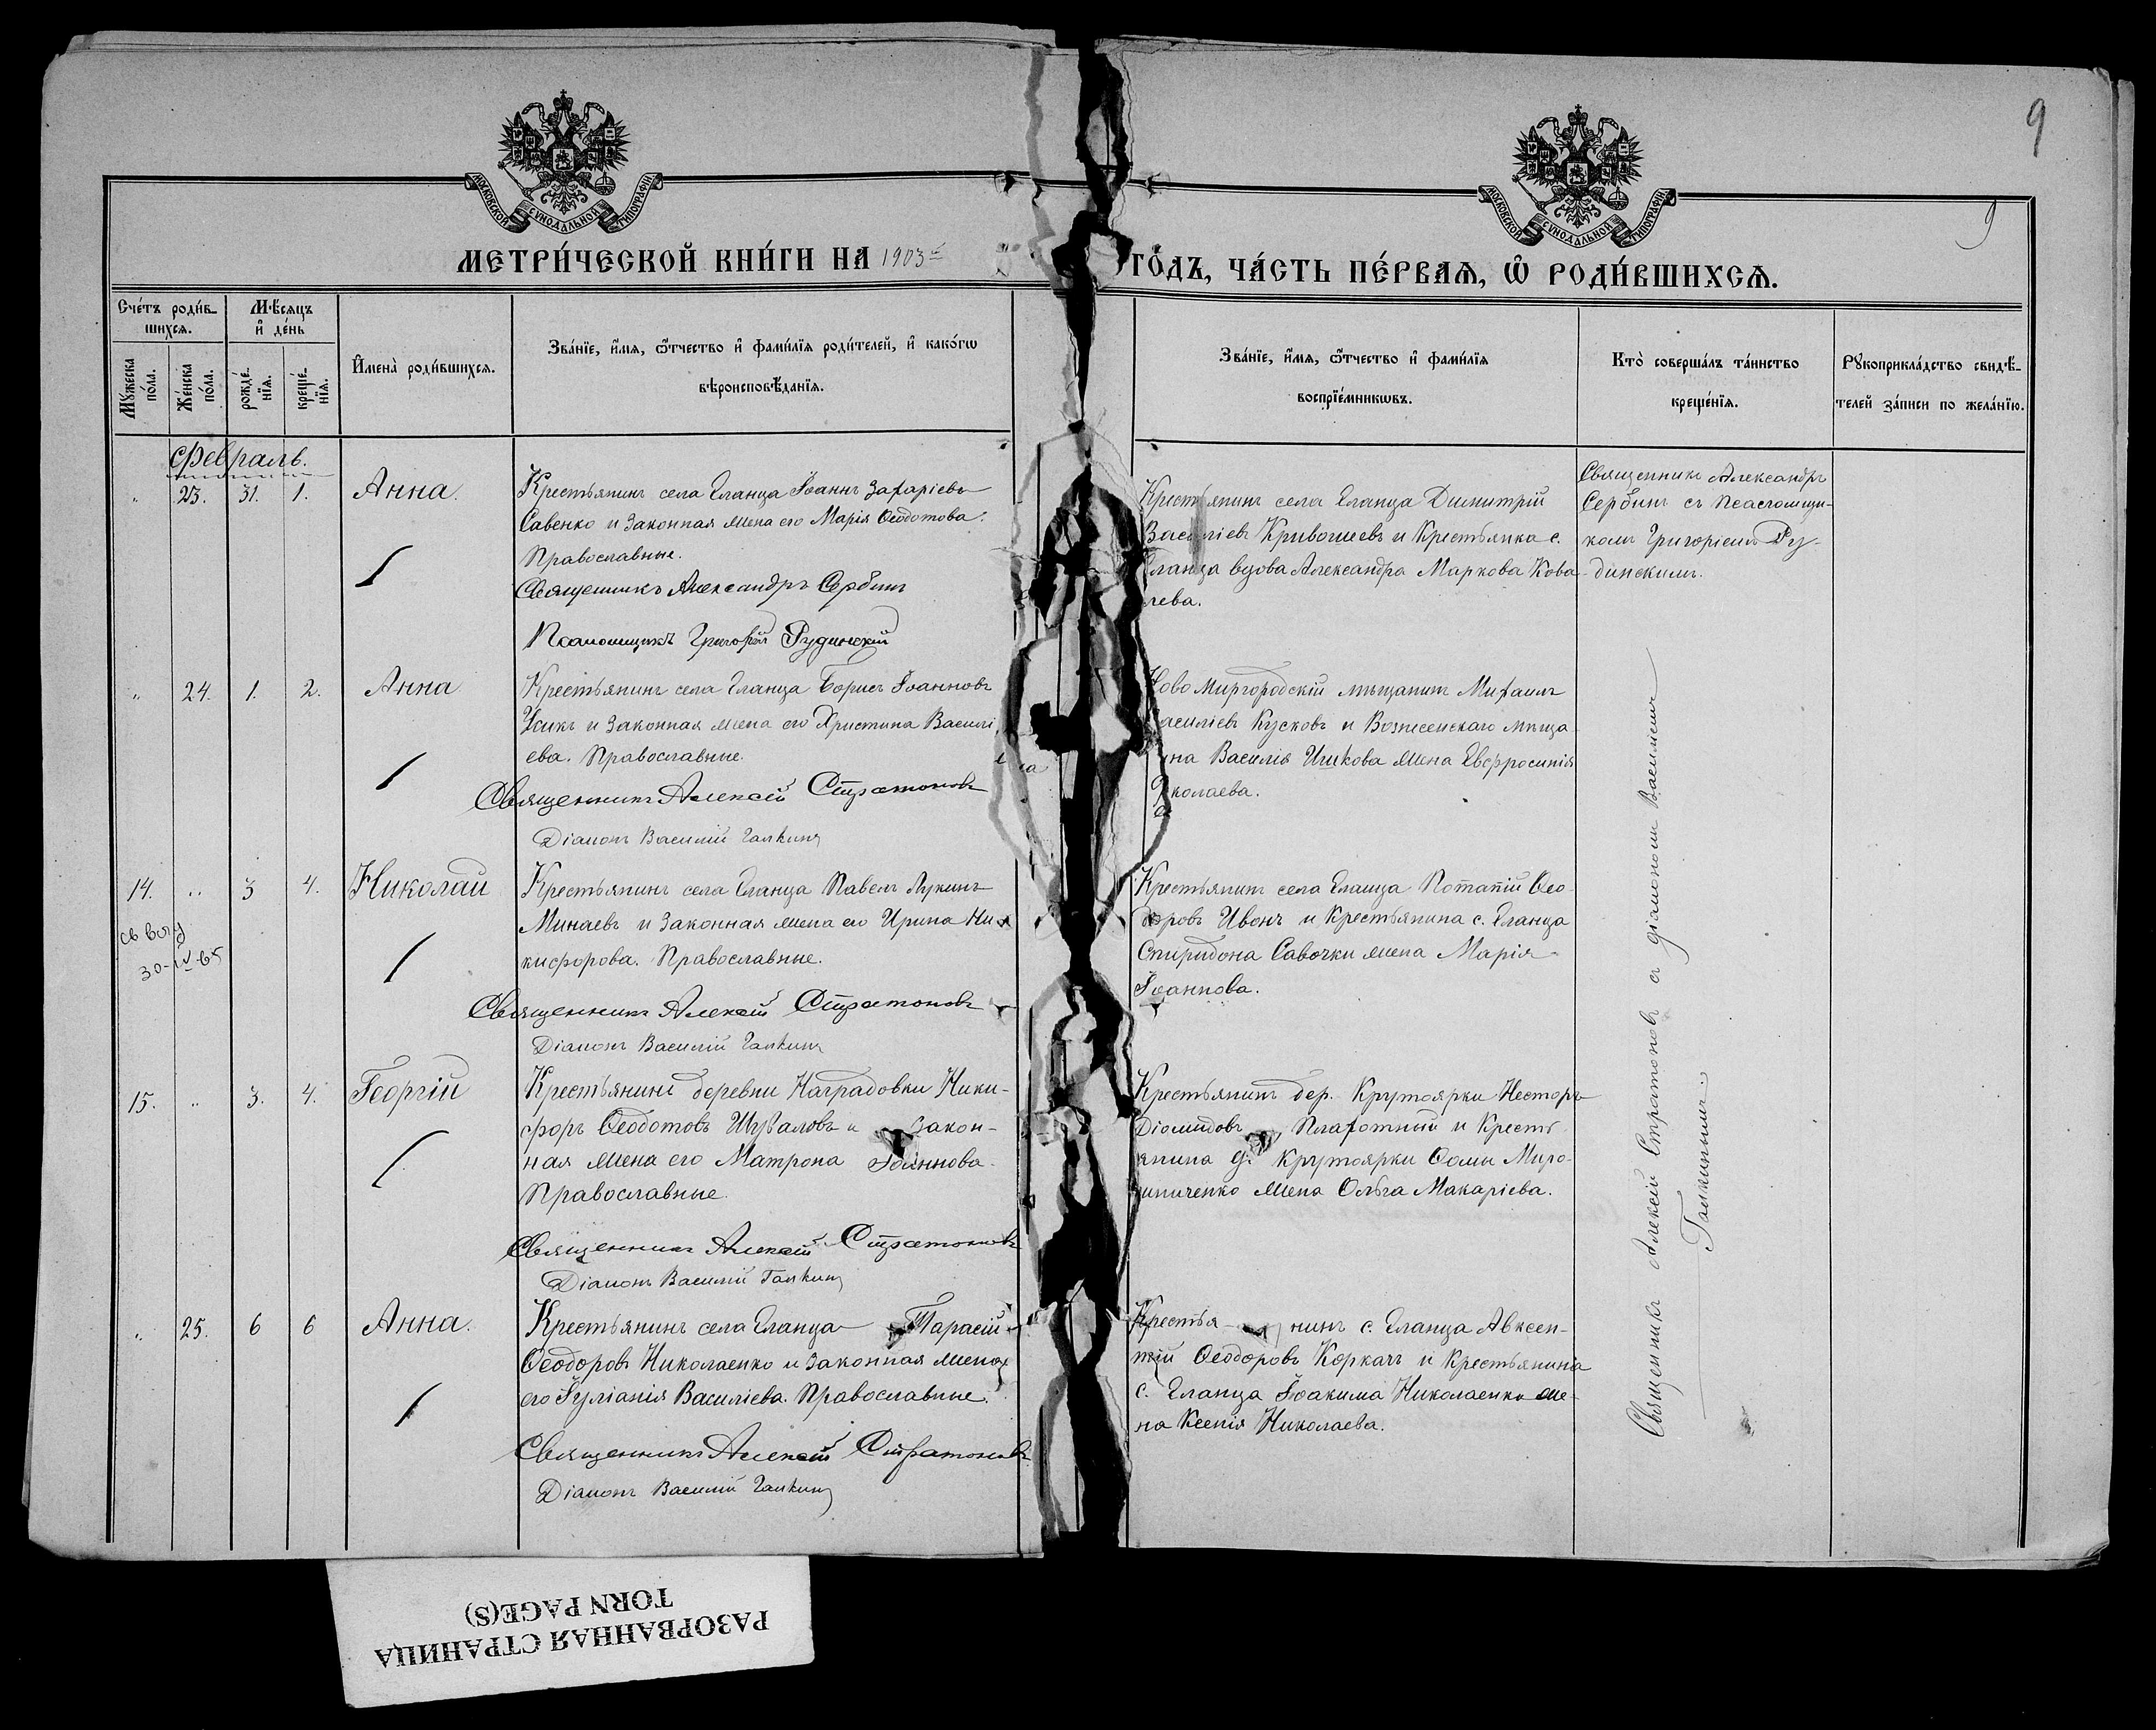 9
9
МОСКОВСКОЙ СѴНОДАЛЬНОЙ ТИПОГРАФІИ
МОСКОВСКОЙ СѴНОДАЛЬНОЙ ТИПОГРАФІИ
МЕТРИ́ЧЕСКОЙ КНИ́ГИ НА 1903й ГО́ДЪ, ЧА́СТЬ ПЕ́РВАЯ, Ѡ РОДИ́ВШИХСѦ.
Сче́тъ роди́в-
шихся.
Мѣ́сяцъ
и де́нь
Му́жеска по́ла.
Же́нска по́ла.
рожде́-
нїя.
креще́-
нїя.
Имена̀ роди́вшихся.
Зва́нїе, и́мя, ѻ҆́тчество и фами́лїя роди́телей, и како́гѡ
вѣроисповѣ́данїя.
Зва́нїе, и́мя, ѻ҆́тчество и фами́лїя
воспрїе́мникѡвъ.
Кто̀ соверша́лъ та́инство
креще́нїя.
Рꙋкоприкла́дство свидѣ́-
телей за́писи по жела́нїю.
Февраль.
„ 23. 31. 1. Анна.
Крестьянинъ села Еланца Іоаннъ Захаріевъ
Савенко и законная жена его Марія Ѳеодотова.
Православные.
Священникъ Александръ Сербинъ
Псаломщикъ Григорій Рудинскій
Крестьянинъ села Еланца Димитрій
Василіевъ Кривошеевъ и Крестьянка с.
Еланца вдова Александра Маркова Кова-
лева.
Священникъ Александръ
Сербинъ съ псаломщи-
комъ Григоріемъ Ру-
динскимъ.
„ 24. 1. 2. Анна
Крестьянинъ села Еланца Борисъ Іоанновъ
Усикъ и законная жена его Христина Василі
ева. Православные.
Священникъ Алексѣй Стратоновъ
Діаконъ Василій Галкинъ
Ново Миргородскій мѣщанинъ Михаилъ
Василіевъ Кусковъ и Вознесенскаго мѣща
на Василія Ишкова жена Евфросинія
колаева.
14. „ 3 4. Николай
св выд
30-IV 65
Крестьянинъ села Еланца Павелъ Лукинъ
Минаевъ и законная жена его Ирина Ни-
кифорова. Православные.
Священникъ Алексѣй Стратоновъ
Діаконъ Василій Галкинъ
Крестьянинъ села Еланца Потапій Ѳео-
доровъ Ивонъ и Крестьянина с. Еланца
Спиридона Савочки жена Марія
Іоаннова.
15. „ 3. 4. Георгій
Крестьянинъ деревни Наградовки Ники-
форъ Ѳеодотовъ Шуваловъ и закон-
ная жена его Матрона Іоаннова
Православные.
Священникъ Алексѣй Стратоновъ
Діаконъ Василій Галкинъ
Крестьянинъ дер. Крутоярки Несторъ
Діомидовъ Плахотный и Кресть
янина д. Крутоярки Ѳомы Миро-
шниченко жена Ольга Макаріева.
„ 25. 6 6 Анна.
Крестьянинъ села Еланца Тарасій
Ѳеодоровъ Николаенко и законная жена
его Іуліанія Василіева. Православные.
Священникъ Алексѣй Стратоновъ
Діаконъ Василій Галкинъ
Крестья нинъ с. Еланца Авксен-
тій Ѳеодоровъ Коркачъ и Крестьянина
с. Еланца Іоакима Николаенко же-
на Ксенія Николаева.
Священникъ Алексѣй Стратоновъ съ діакономъ Василіемъ
Галкинымъ.
РАЗОРВАННАЯ СТРАНИЦА
TORN PAGE(S)